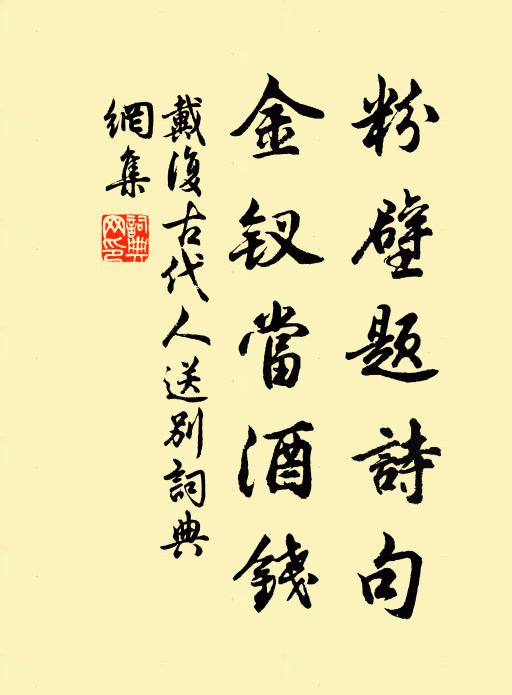 粉壁題詩句
金釵當酒錢
戴復古代人送別詞典
網集
詞典
网印